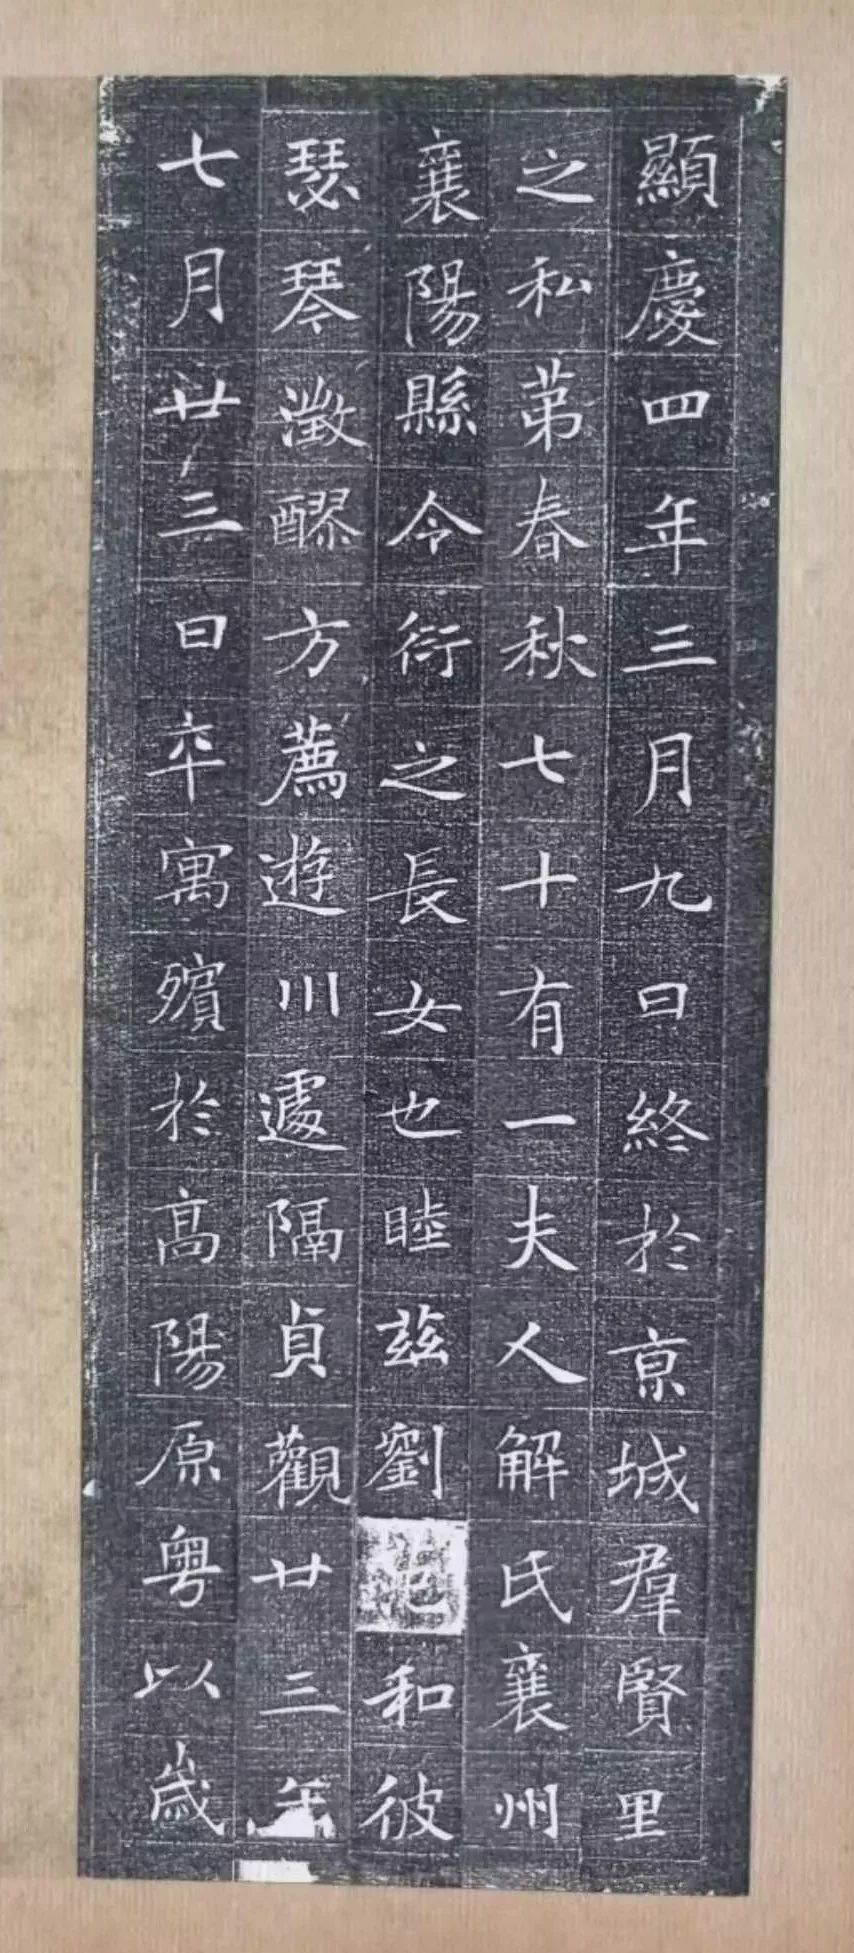 顯慶四年三月九日終於京城羣賢里
之私第春秋七十有一夫人解氏襄州
襄陽縣令衍之長女也睦茲劉和彼
瑟琴澂醪方薦遊川遽隔貞觀廿三年
七月廿三日卒寓殯於高陽原粵以歲